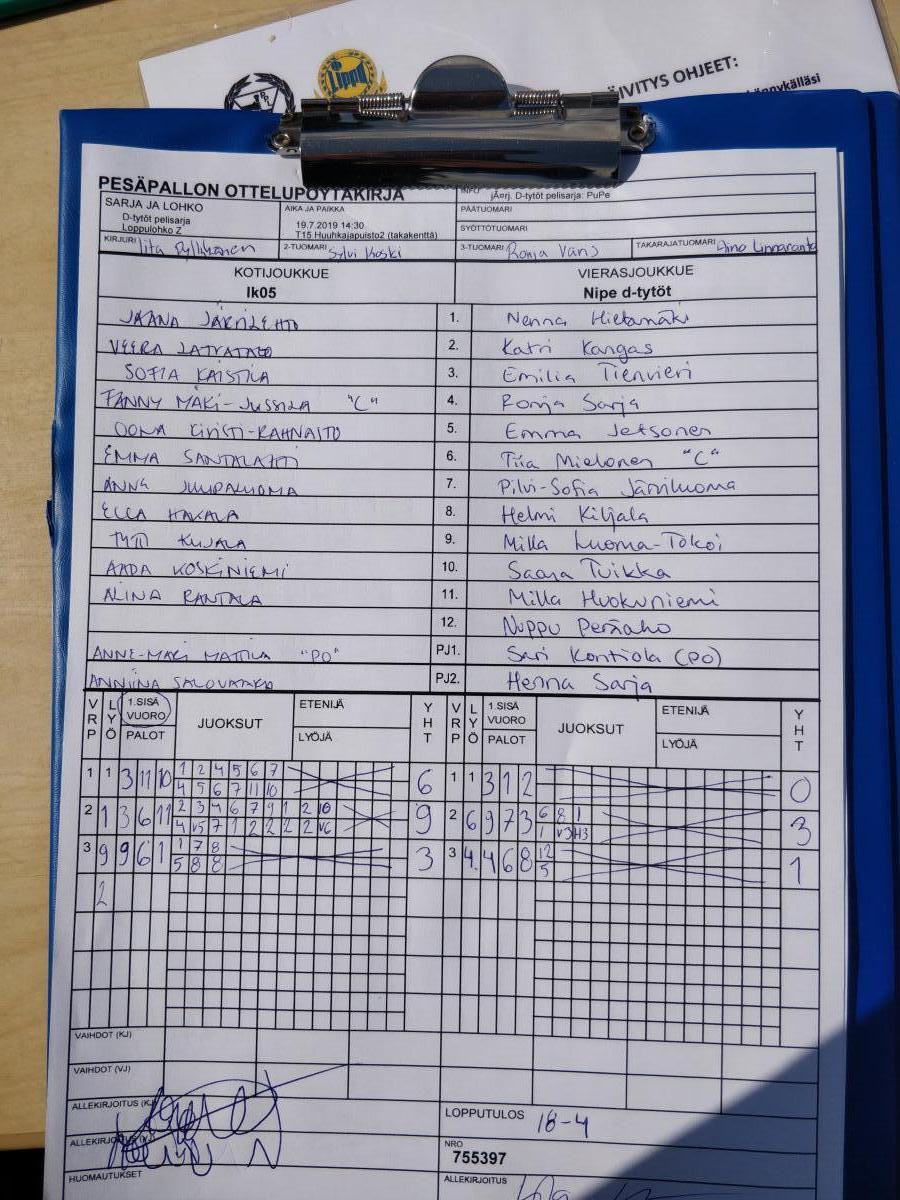 Lippo
IVITYS OHJEET:
PESÄPALLON OTTELUPÖYTÄKIRJA
INFO jÄ¤rj. D-tytöt pelisarja: PuPe
SARJA JA LOHKO
D-tytöt pelisarja
Loppulohko Z
AIKA JA PAIKKA
19.7.2019 14:30
T15 Huuhkajapuisto2 (takakenttä)
PÄÄTUOMARI
SYÖTTÖTUOMARI
KIRJURI Iita
2-TUOMARI Sylvi Koski
3-TUOMARI Ronja
TAKARAJATUOMARI Aino Linnaranta
KOTIJOUKKUE VIERASJOUKKUE
Ik05 Nipe d-tytöt
JAANA JÄRVILEHTO 1. Nenna Hietamäki
VEERA LATVATALO 2. Katri Kangas
SOFIA KAISTILA 3. Emilia Tienvieri
FANNY MÄKI-JUSSILA "C" 4. Ronja Sarja
OONA 5. Emma Jetsonen
EMMA SANTALAHTI 6. Tiia Mielonen "C"
ANNA JUUPALUOMA 7. Pilvi-Sofia Järviluoma
ELLA HAKALA 8. Helmi Kiljala
TYTTI KUJALA 9. Milla Luoma-Tokoi
AADA KOSKINIEMI 10. Saana Tuikka
ALINA RANTALA 11. Milla Huokuniemi
12. Nuppu Peräaho
ANNE-MARI MATTILA "PO" PJ1. Sari Kontiola (PO)
ANNIINA PJ2. Henna Sarja
VRP LYÖ 1.SISÄ VUORO PALOT JUOKSUT ETENIJÄ LYÖJÄ YHT VRP LYÖ 1.SISÄ VUORO PALOT JUOKSUT ETENIJÄ LYÖJÄ YHT
1 1 3 11 10 1 2 4 5 6 7 6 1 1 3 1 2 0
4 5 6 7 11 10
2 1 3 6 11 2 3 4 6 7 9 1 2 10 9 2 6 9 7 3 6 8 1 3
4 V5 7 1 2 2 2 2 V6 1 V3 H3
3 9 9 6 1 1 7 8 3 3 4 4 6 8 12 1
5 8 8 5
2
VAIHDOT (KJ)
VAIHDOT (VJ)
ALLEKIRJOITUS (KJ)
LOPPUTULOS 18-4
ALLEKIRJOITUS (VJ)
NRO
755397
HUOMAUTUKSET
ALLEKIRJOITUS